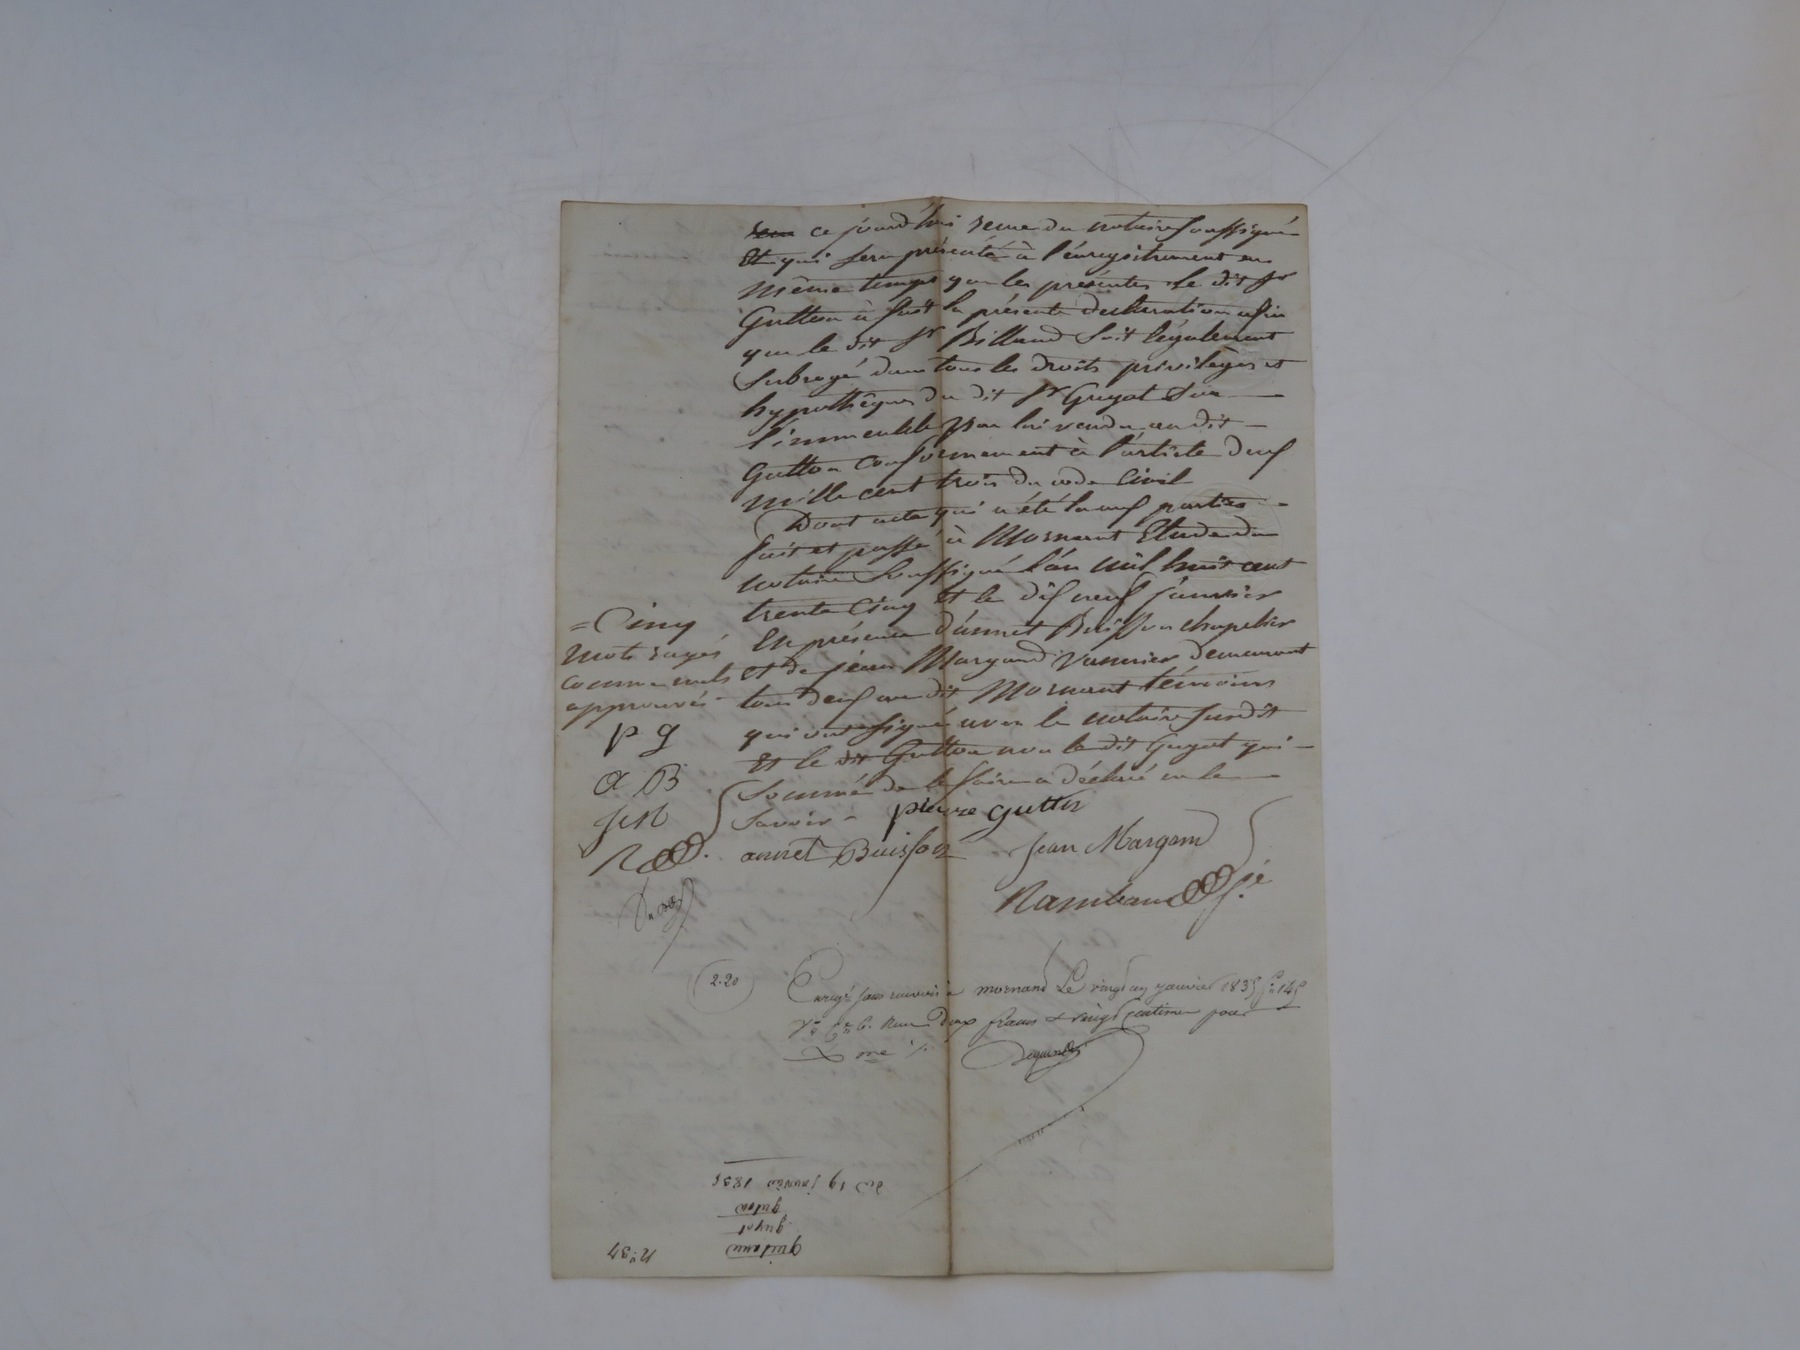 ce jourd'hui reçue du notaire soussigné
Et qui sera présenté à l'enregistrement en
même temps que les présentes le dit Sr
Gutton a fait la présente declaration afin
que le dit Sr Billaud soit légalement
subrogé dans tous les droits privilèges et
hypothèques du dit Sr Guyot sur
l'immeuble par lui vendu au dit
Gutton conformement à l'article deux
mille cent trois du code Civil
Dont acte qui a été lu aux parties
fait et passé à Mornant Etude du
notaire soussigné l'an mil huit cent
trente cinq Et le dix neuf janvier
En présence d'annet Buisson chapelier
et de jean Margand vannier demeurant
tous deux au dit Mornant témoins
qui ont signé avec le notaire susdit
Et le dit Gutton non le dit Guyot qui
sommé de le faire a déclaré ne le
savoir
= Cinq
mots rayés
comme nuls
approuvés
p g
a B
J M
R
pierre gutton
annet Buisson
Jean Margand
Rambaud
2.20
Enregé sans renvoi à mornant Le vingt un janvier 1835 fo 145
Vo Ce 6. Reçu deux francs & vingt Centimes pour
Xme
No 37
quittance
guyot
guton
du 19 janvier 1835